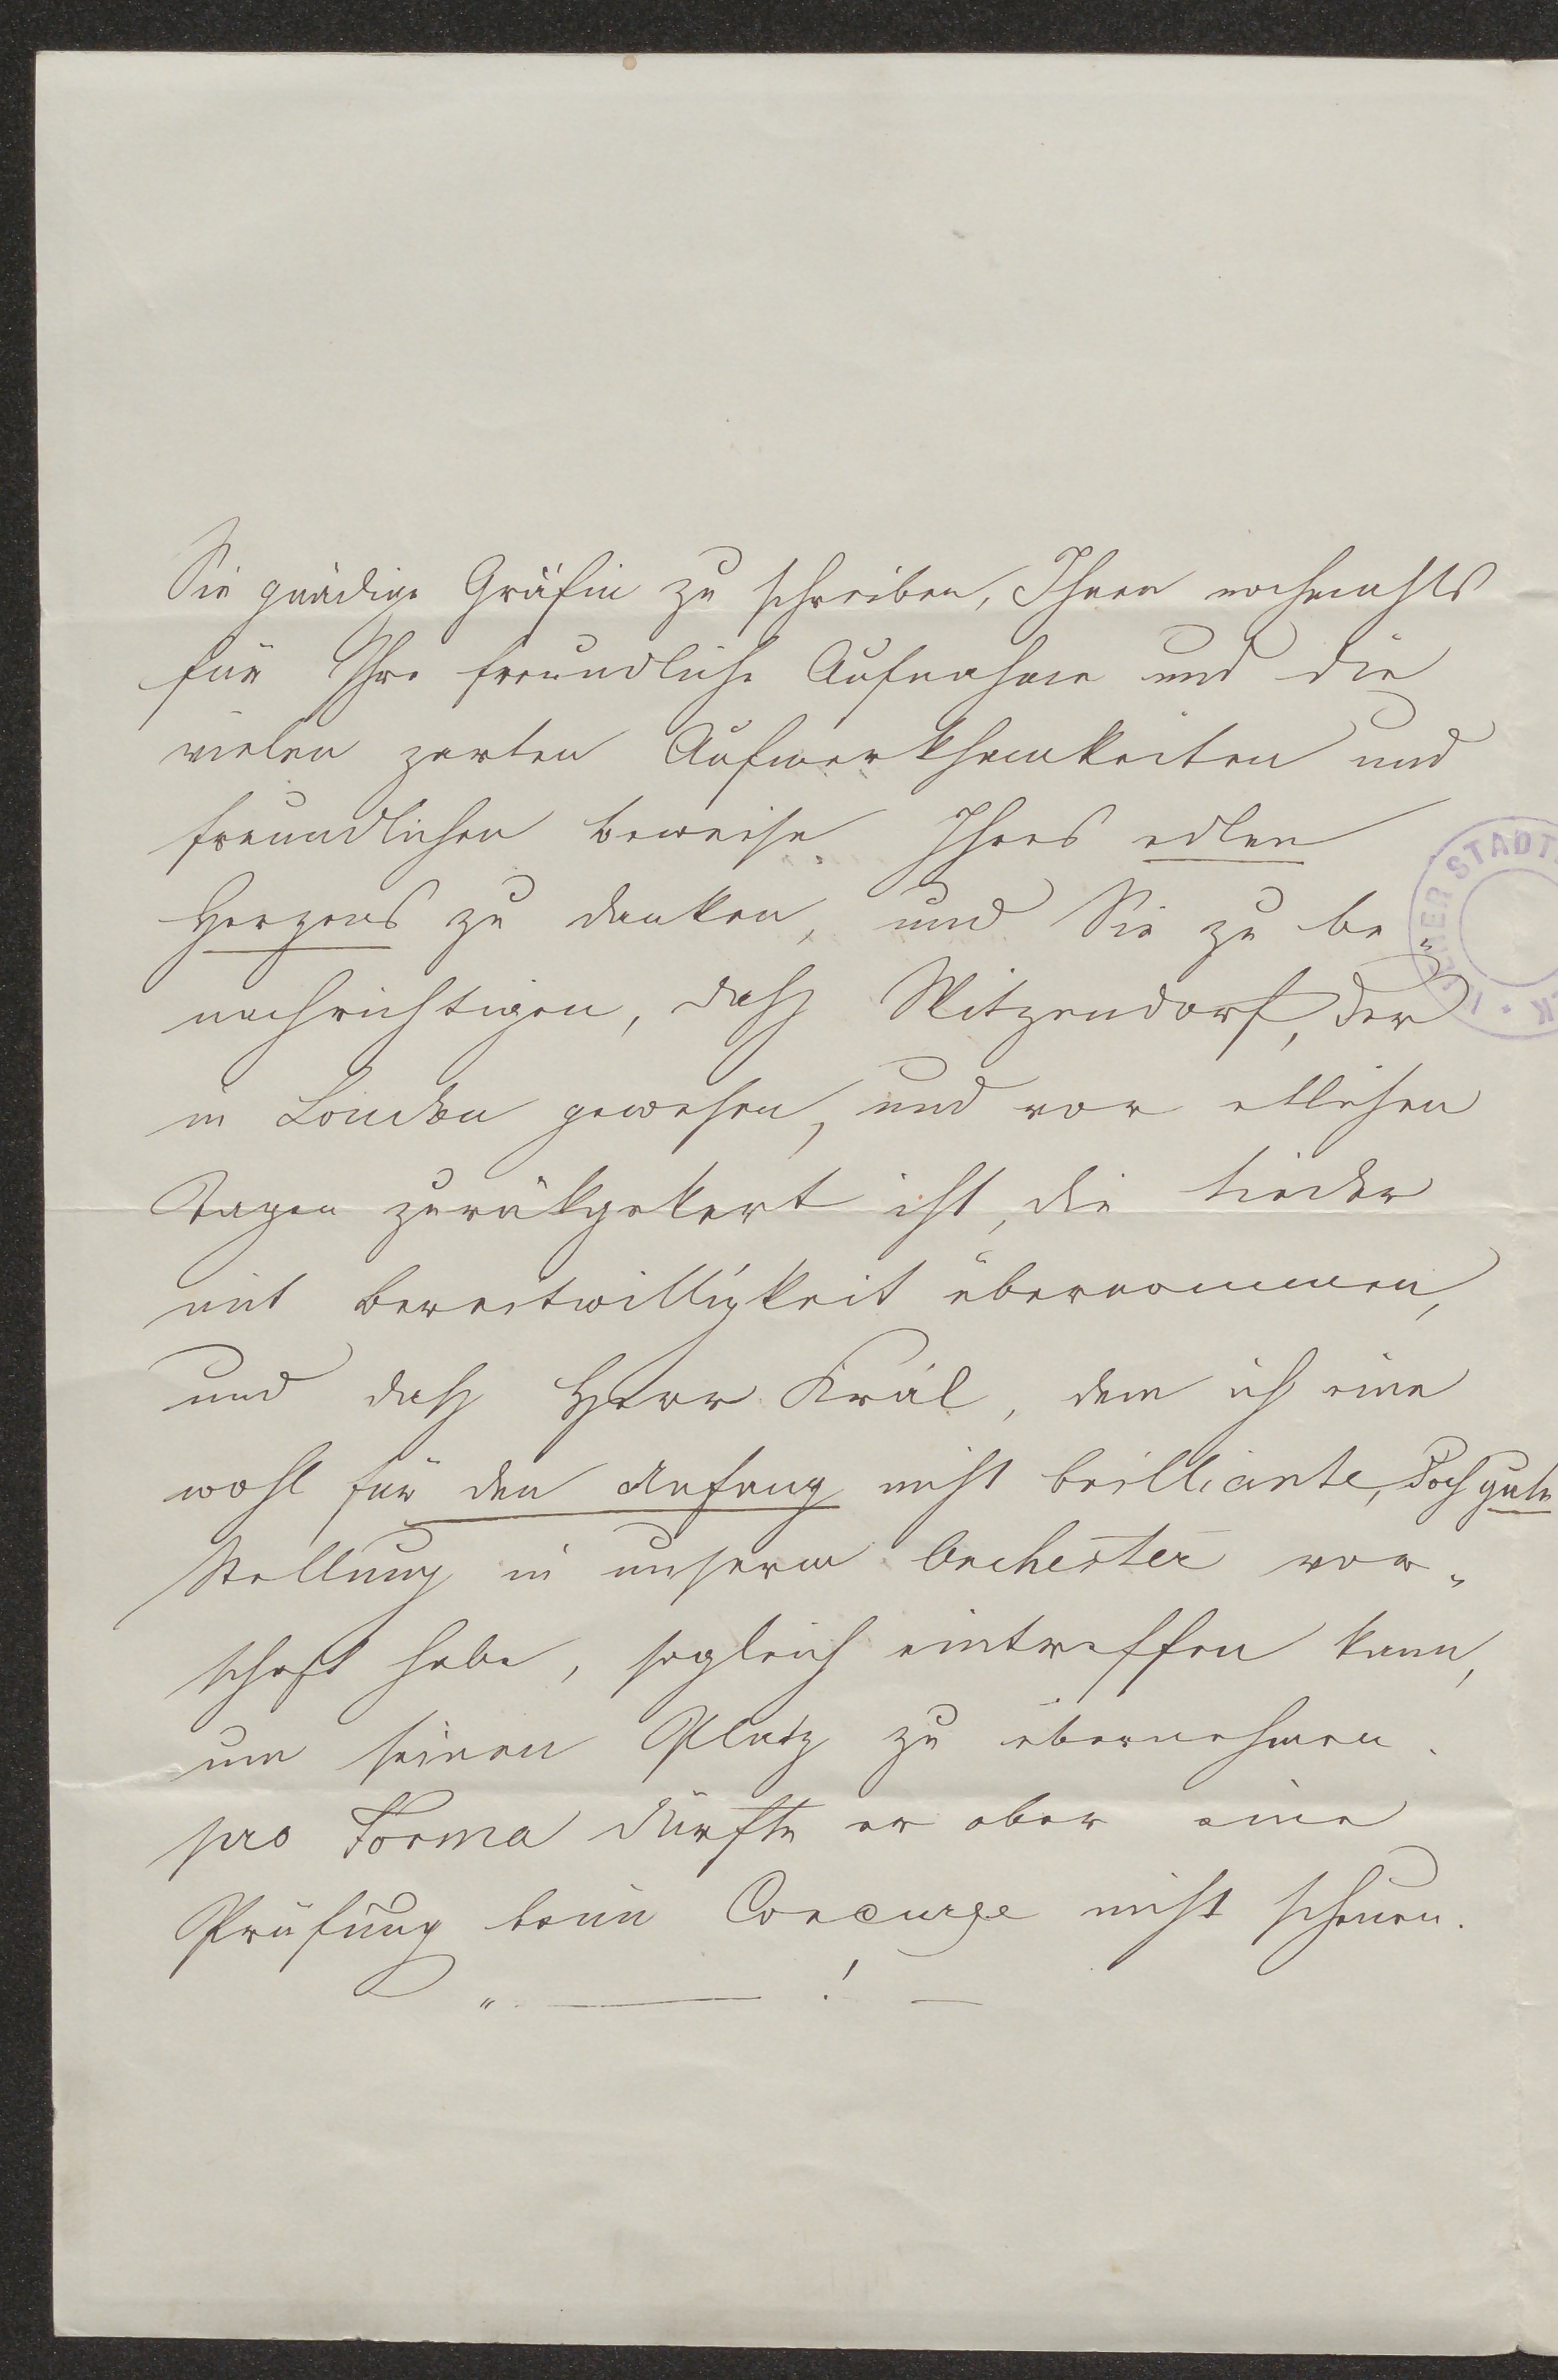 Sie gnädige Gräfin zu schreiben, Ihnen nochmahls
für Ihre freundliche Aufnahme und die
vielen zarten Aufmerksamkeiten und
freundlichen beweise Ihres edlen
Herzens zu danken, und Sie zu be„
nachrichtigen, dasz Witzendorf, der
in London gewesen, und vor etlichen
Tagen zurükgekert ist, die Lieder
mit bereitwilligkeit übernommen,
und dasz Herr Král, dem ich eine
wohl für den Anfang nicht brilliante, doch gute
Stellung in unserm Orchester ver„
schaft habe, sogleich eintreffen kann,
um seinen Platz zu übernehmen.
pro Forma dürfte er aber eine
Prüfung beim Concurse nicht scheuen.
„ — ! —
WIENER STADT